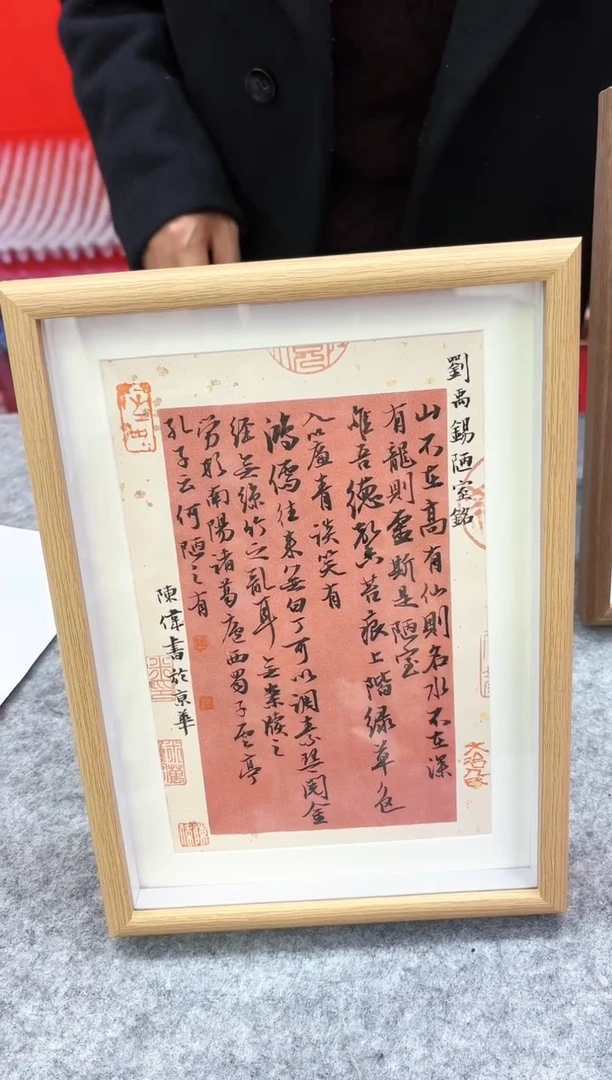 劉禹錫陋室銘
山不在高有仙則名水不在深
有龍則靈斯是陋室
惟吾德馨苔痕上階緑草色
入簾青談笑有
鴻儒往來無白丁可以調素琴閱金
經無絲竹之亂耳無案牘之
勞形南陽諸葛廬西蜀子雲亭
孔子云何陋之有
陳偉書於京華